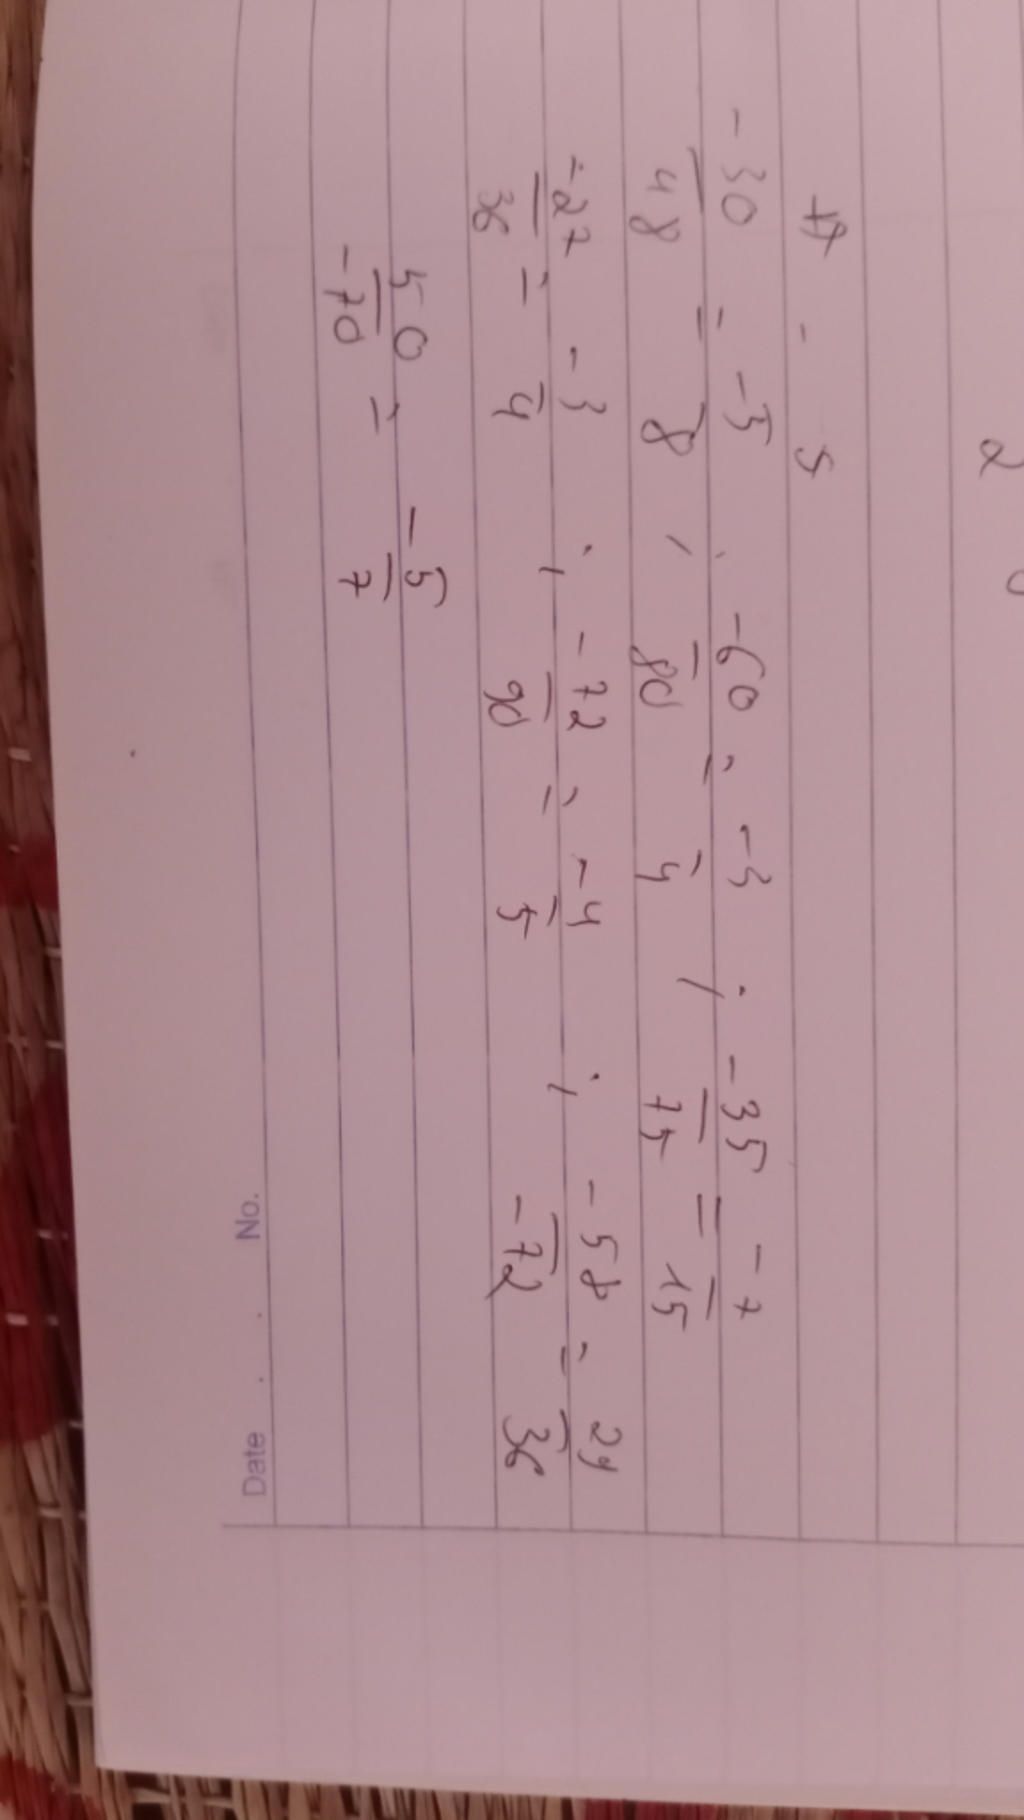 2
- 5
-30/48 = -5/8 ; -60/80 = -3/4 ; -35/75 = -7/15
-27/36 = -3/4 ; -72/90 = -4/5 ; -58/-72 = 29/36
50/-70 = -5/7
No.
Date